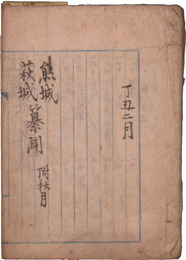 丁丑二月
熊城
萩城
纂聞 附秋月